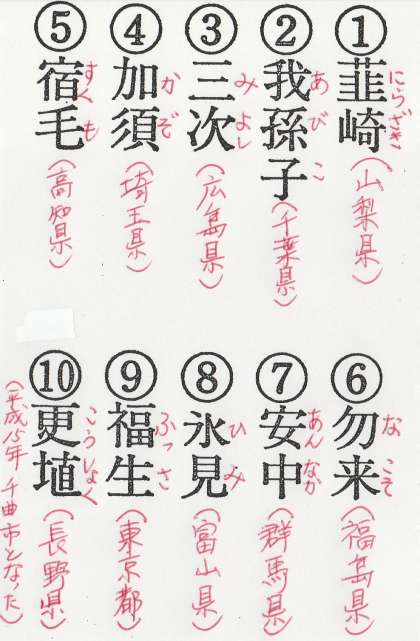 ① 韮崎 にらざき (山梨県)
② 我孫子 あびこ (千葉県)
③ 三次 みよし (広島県)
④ 加須 かぞ (埼玉県)
⑤ 宿毛 すくも (高知県)
⑥ 勿来 なこそ (福島県)
⑦ 安中 あんなか (群馬県)
⑧ 氷見 ひみ (富山県)
⑨ 福生 ふっさ (東京都)
⑩ 更埴 こうしょく (長野県)
(平成15年 千曲市となった)